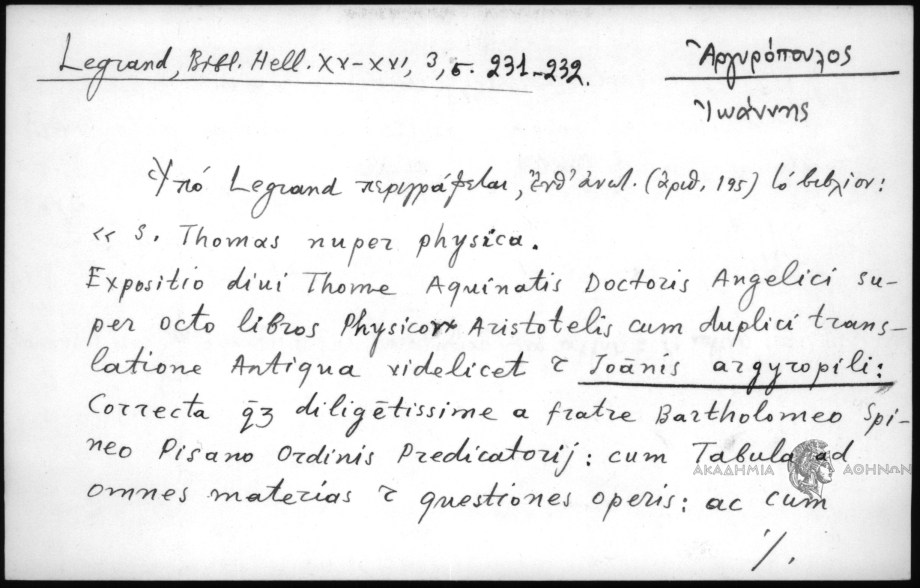 Legrand, Bibl. Hell. XV-XVI, 3, σ. 231-232.
Ἀργυρόπουλος
Ἰωάννης
Ὑπό Legrand περιγράφεται, ἐνθ' ἀνωτ. (ἀριθ. 195) τό βιβλίον:
« S. Thomas nuper physica.
Expositio diui Thome Aquinatis Doctoris Angelici su-
per octo libros Physicoꝝ Aristotelis cum duplici trans-
latione Antiqua videlicet ⁊ Joānis argyropili:
Correcta q̄ȝ diligētissime a fratre Bartholomeo Spi-
neo Pisano Ordinis Predicatorij: cum Tabula ad
omnes materias ⁊ questiones operis: ac cum
·/.
ΑΚΑΔΗΜΙΑ ΑΘΗΝΩΝ